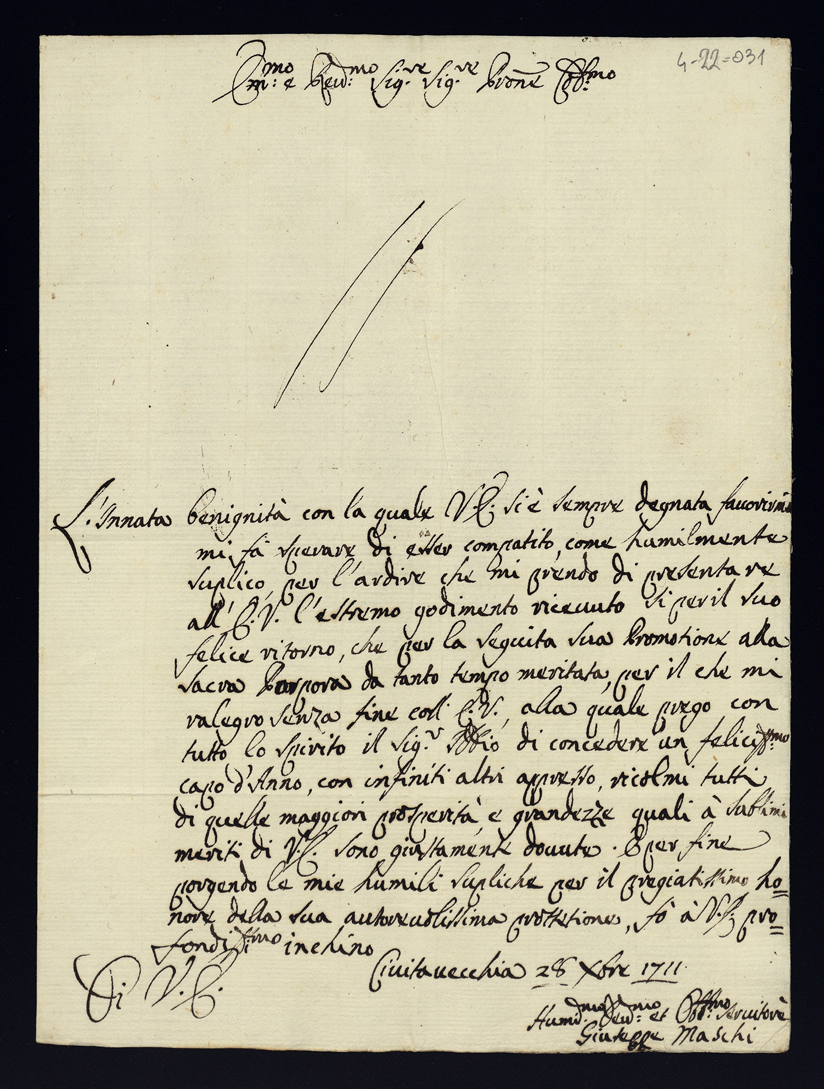 4-22-031
Em.mo e Rev.mo Sig.re Sig.re Prone Coll.mo
L'Innata benignità con la quale V.E. si è sempre degnata favorirmi
mi fà sperare di esser compatito, come humilmente
suplico, per l'ardire che mi prendo di presentare
all'E.V. l'estremo godimento riceuuto si per il suo
felice ritorno, che per la seguita sua Promotione alla
sacra Porpora da tanto tempo meritata, per il che mi
ralegro senza fine coll'E.V., alla quale prego con
tutto lo spirito il Sig.r Iddio di concedere un feliciss.mo
capo d'Anno, con infiniti altri appresso, ricolmi tutti
di quelle maggiori prosperità, e grandezze quali à sublimi
meriti di V.E. sono giustamente douute. E per fine
porgendo le mie humili supliche per il pregiatissimo ho=
nore della sua autoreuolissima protetione, fò à V.E. pro=
fondiss.mo inchino
Ciuitauecchia 28 Xbre 1711
Di V.E.
Humil.mo Deu.mo et Obl.mo Seruitore
Giuseppe Maschi